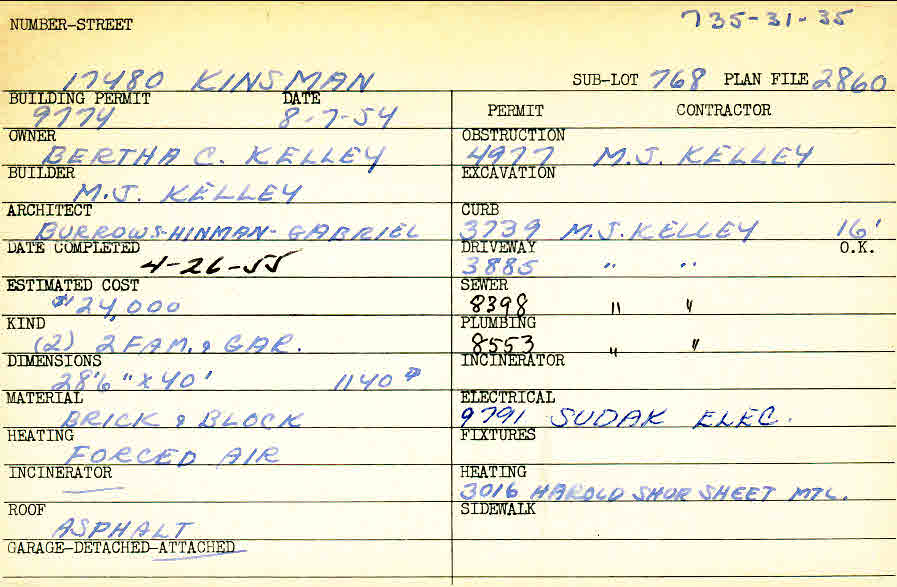 735-31-35
NUMBER-STREET
17480 KINSMAN SUB-LOT 768 PLAN FILE 2860
BUILDING PERMIT DATE
9774 8-7-54
PERMIT CONTRACTOR
OWNER
BERTHA C. KELLEY
OBSTRUCTION
4977 M.J. KELLEY
BUILDER
M.J. KELLEY
EXCAVATION
ARCHITECT
BURROWS-HINMAN-GABRIEL
CURB
3739 M.J. KELLEY 16'
DATE COMPLETED
4-26-55
DRIVEWAY O.K.
3885 " "
ESTIMATED COST
$24,000
SEWER
8398 " "
KIND
(2) 2 FAM. & GAR.
PLUMBING
8553 " "
DIMENSIONS
28'6" X 40' 1140 #
INCINERATOR
MATERIAL
BRICK & BLOCK
ELECTRICAL
9791 SUDAK ELEC.
HEATING
FORCED AIR
FIXTURES
INCINERATOR
—
HEATING
3016 HAROLD SHOR SHEET MTL.
ROOF
ASPHALT
SIDEWALK
GARAGE-DETACHED-ATTACHED